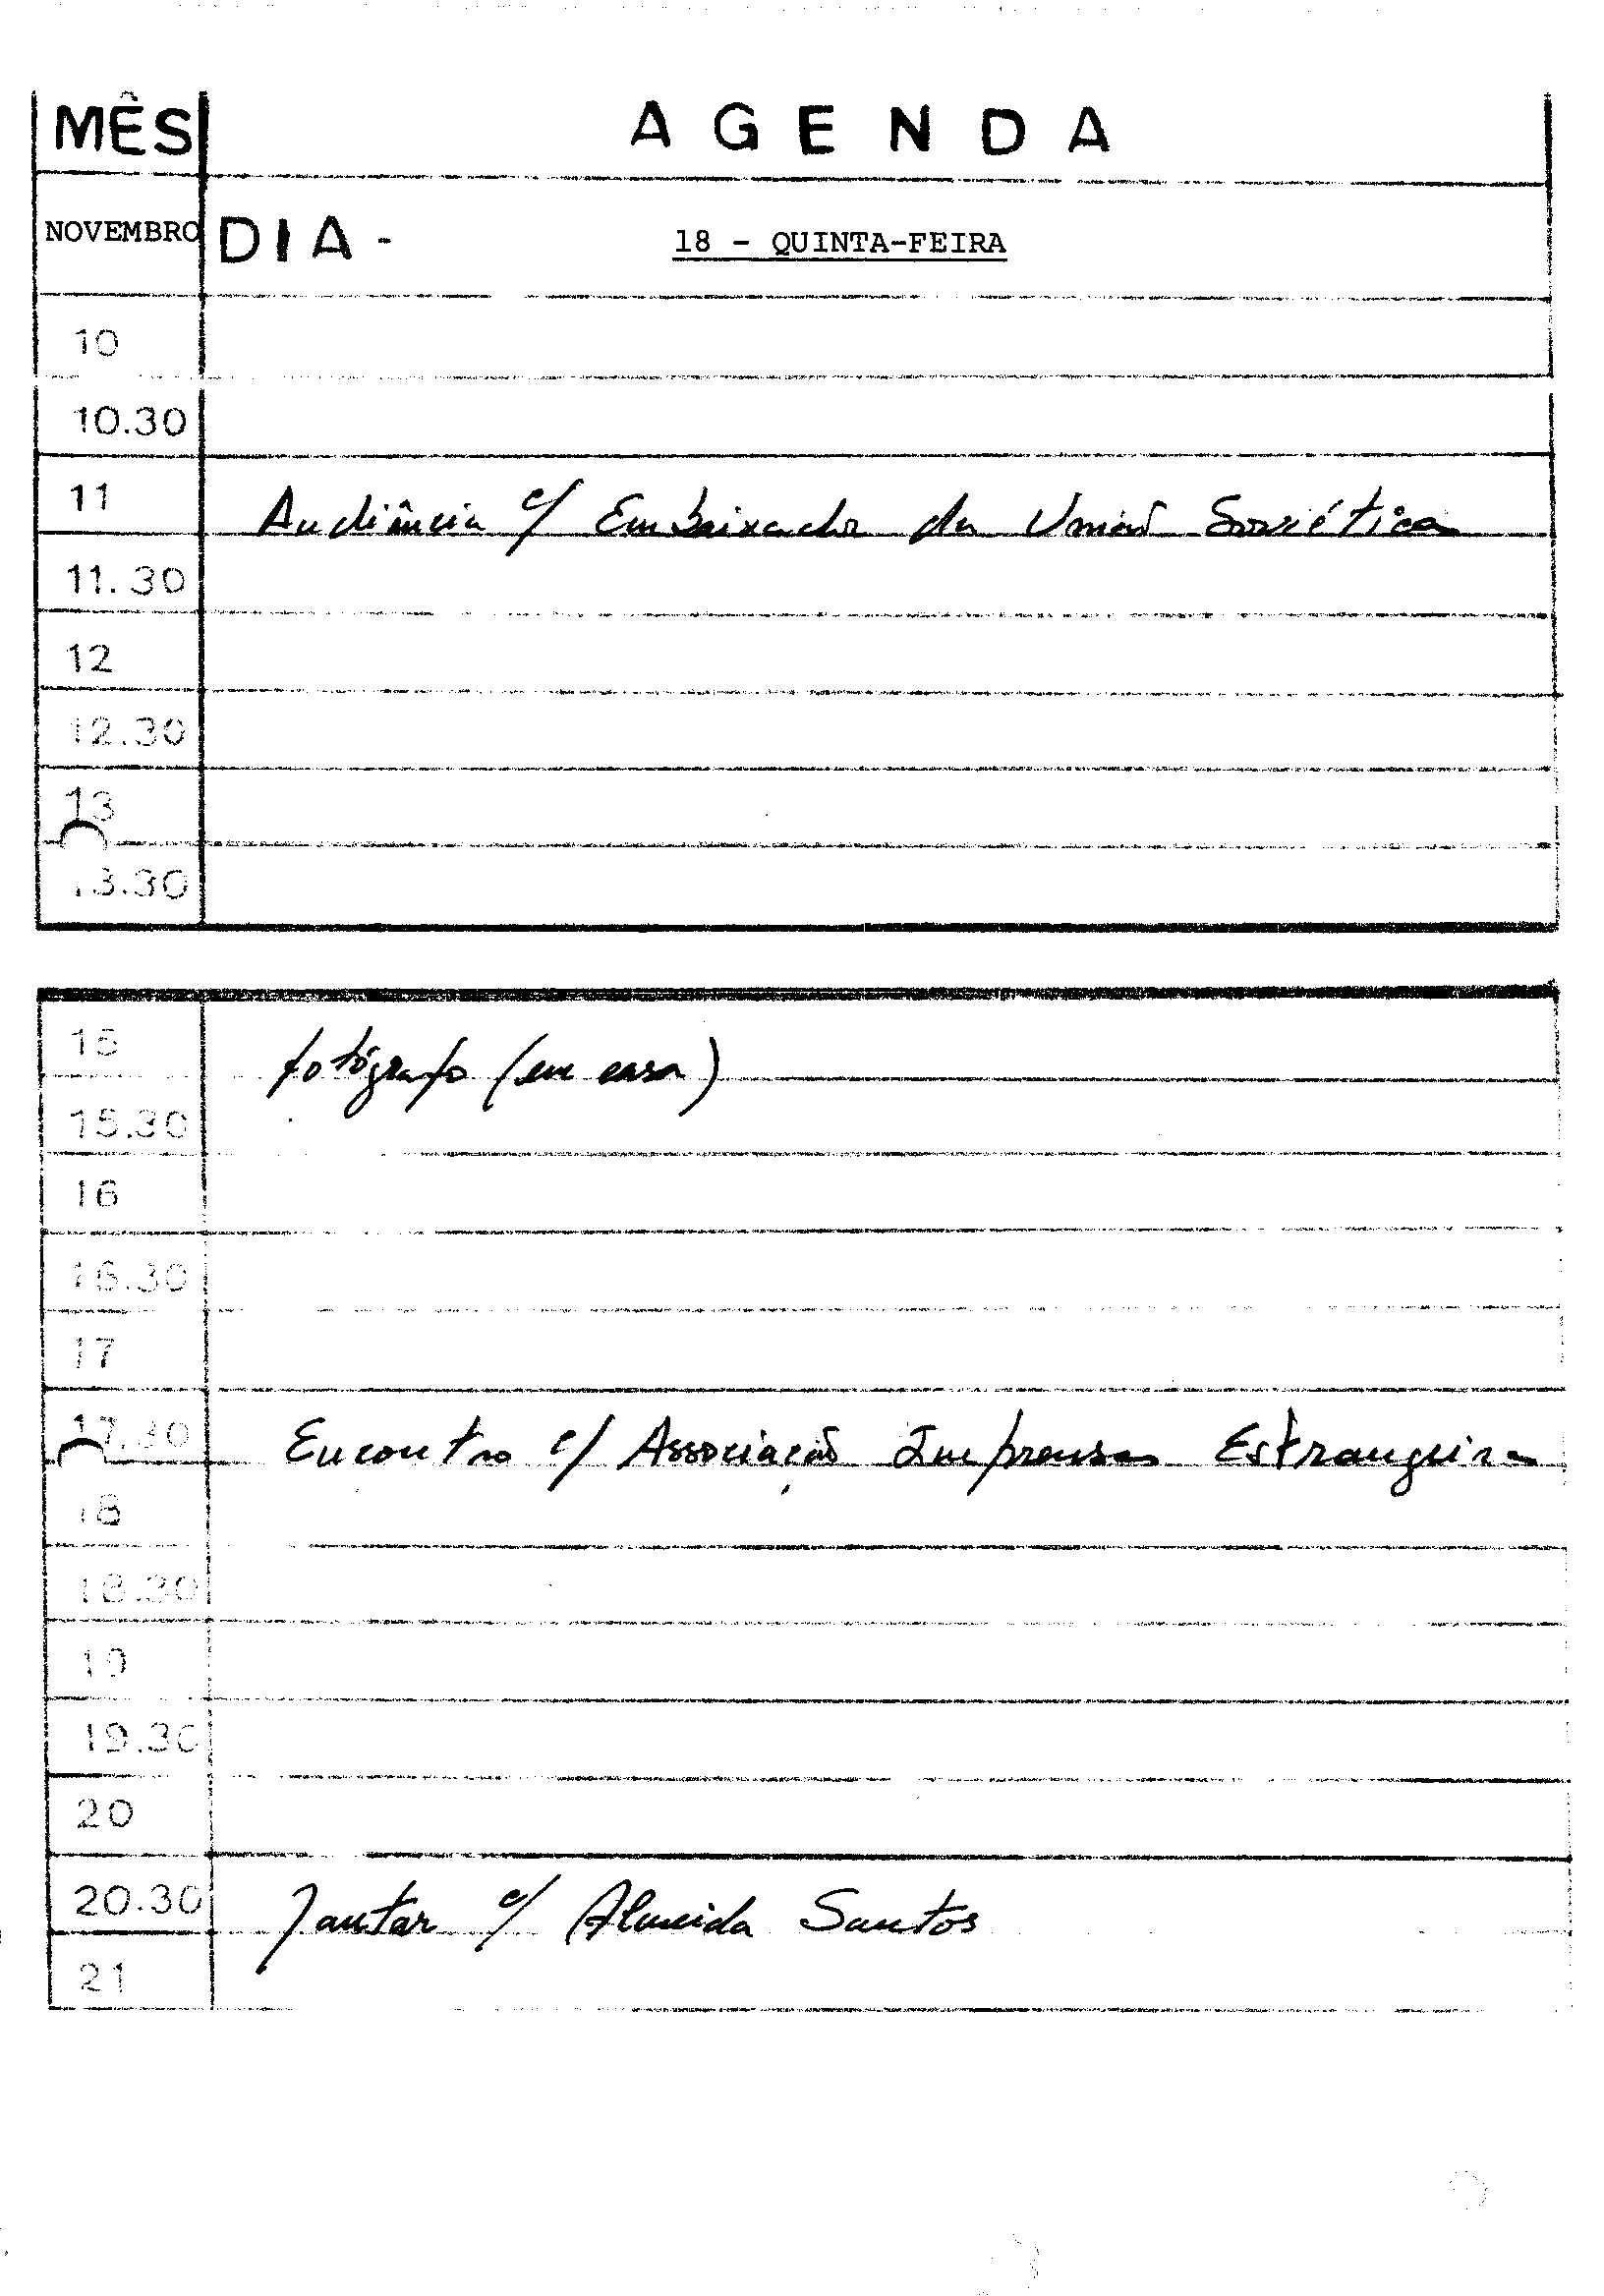 MÊS AGENDA
NOVEMBRO DIA - 18 - QUINTA-FEIRA
10
10.30
11 Audiência c/ Embaixador da União Soviética
11.30
12
12.30
13
13.30
15 fotógrafo (em casa)
15.30
16
16.30
17
17.30 Encontro c/ Associação Imprensa Estrangeira
18
18.30
19
19.30
20
20.30 Jantar c/ Almeida Santos
21